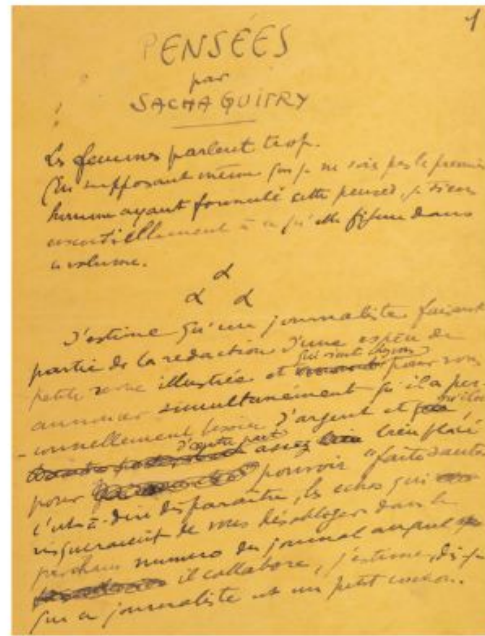 1
PENSÉES
par
SACHA GUITRY
Les femmes parlent trop.
En supposant même que je ne sois pas le premier
homme ayant formulé cette pensée, je tiens
essentiellement à ce qu'elle figure dans
ce volume.
J'estime qu'un journaliste faisant
partie de la rédaction d'une espèce de
petite revue illustrée et qui vient chez vous pour vous
annoncer simultanément qu'il a per-
-sonnellement besoin d'argent et
d'autre part assez bien placé
pour pouvoir "faire sauter"
c'est-à-dire disparaître, les échos qui
risqueraient de vous désobliger dans le
prochain numéro du journal auquel
il collabore, j'estime, dis-je
que ce journaliste est un petit cochon.